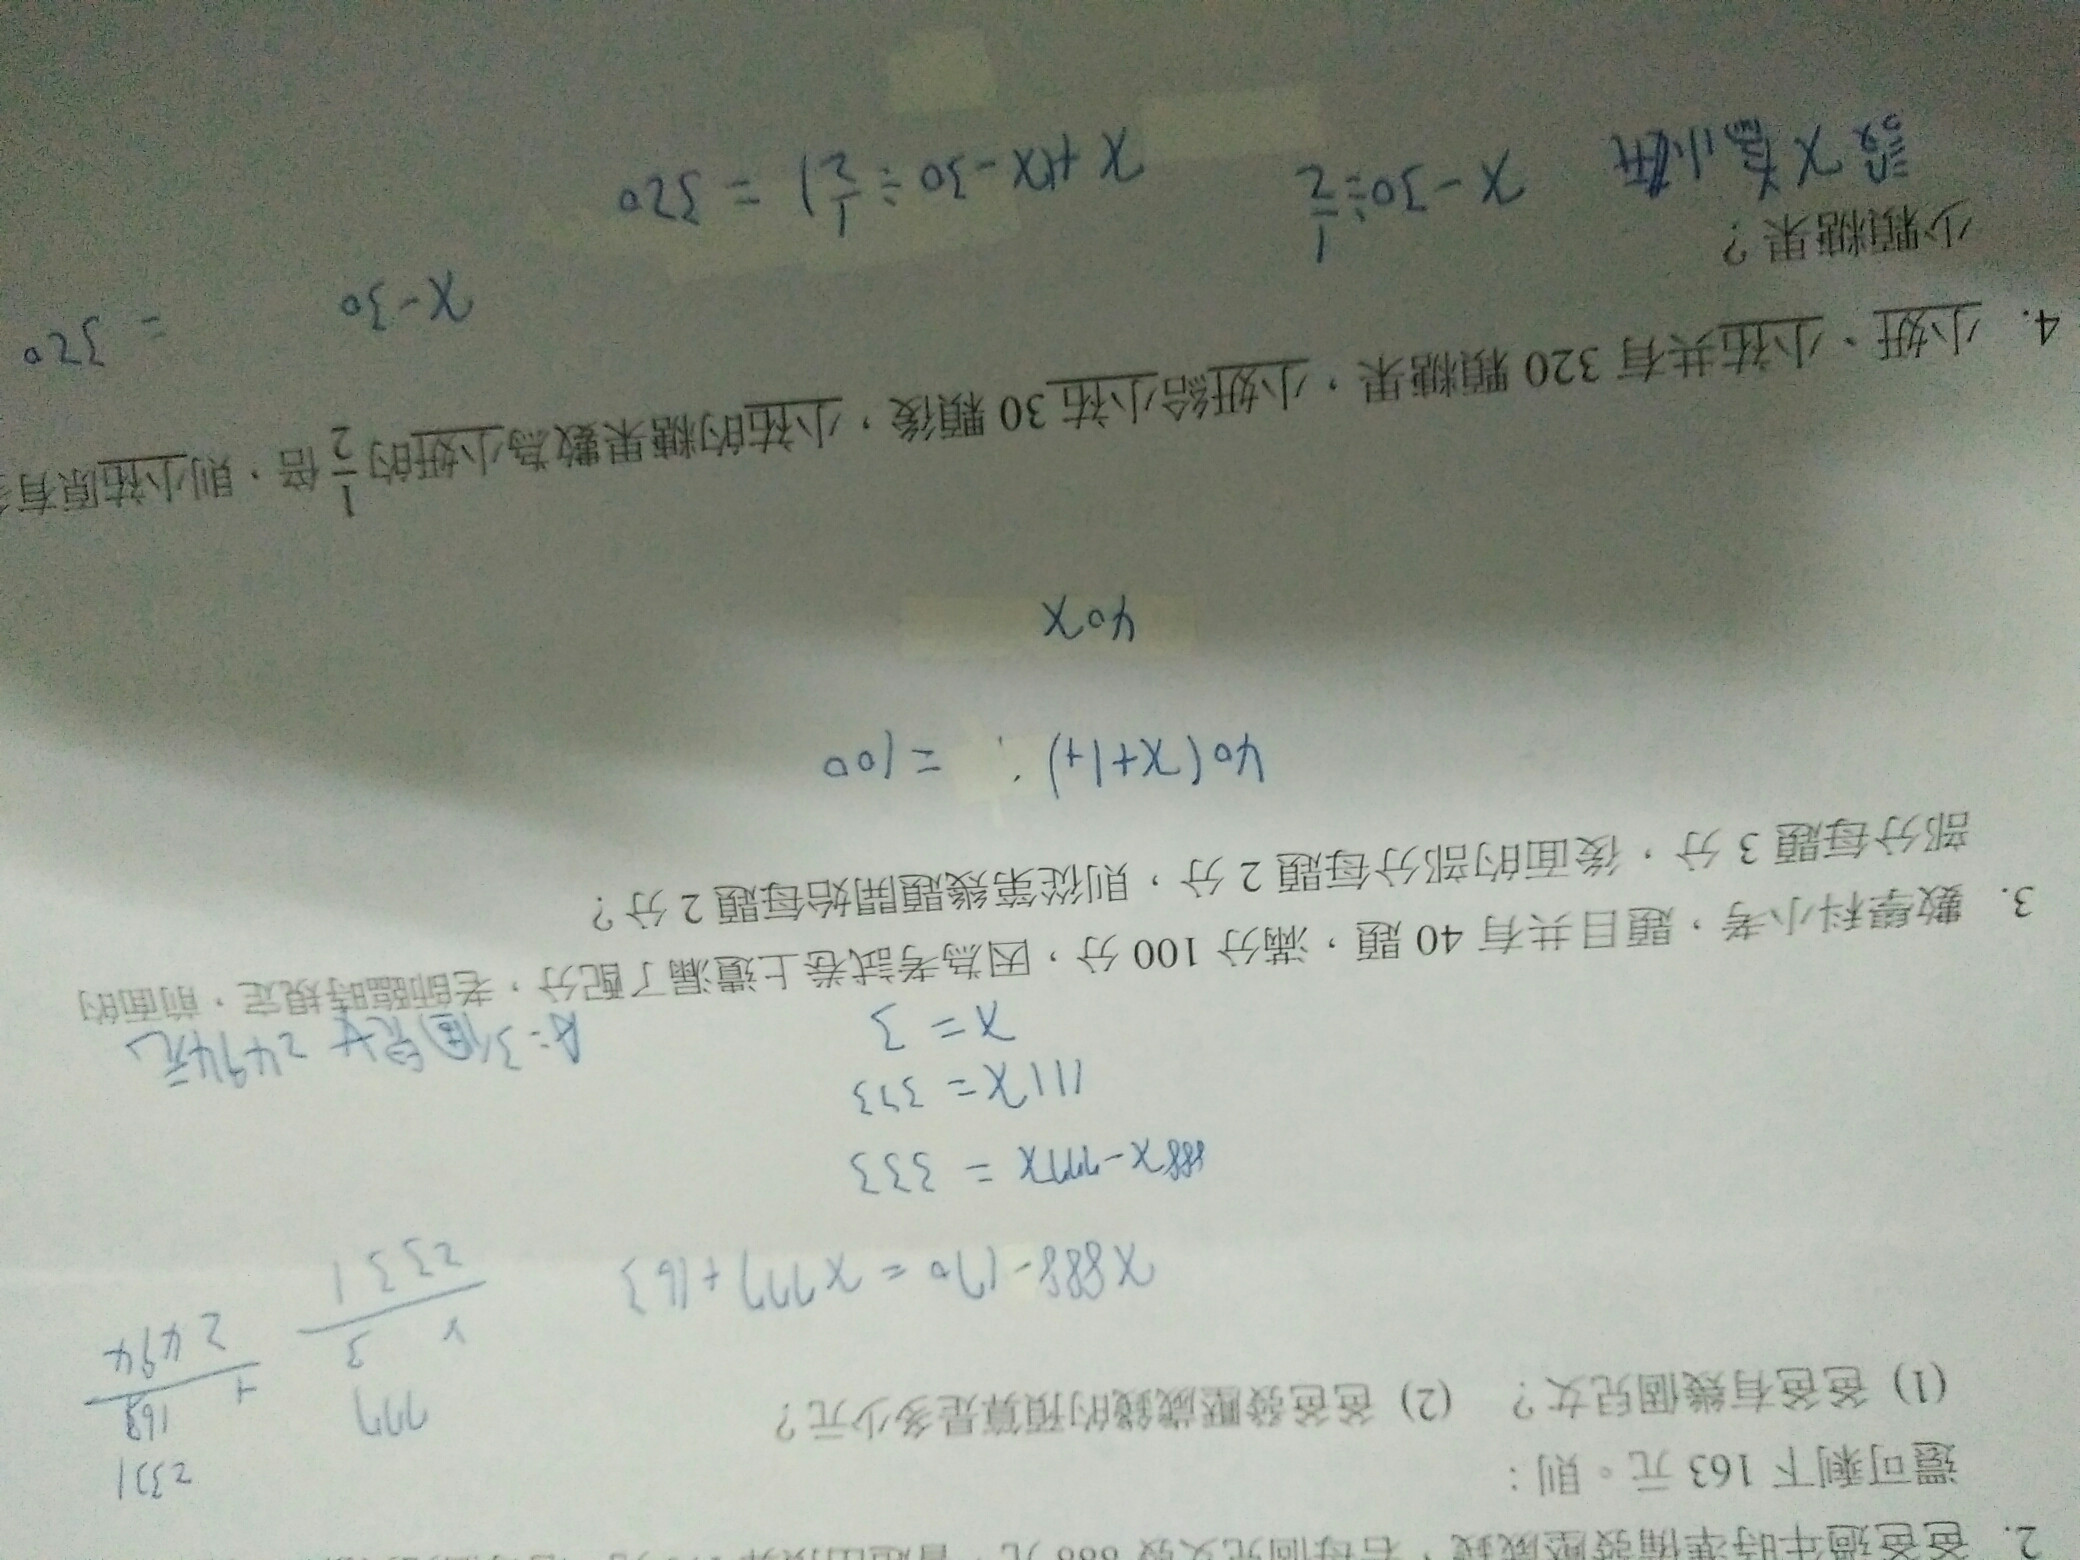 2. 爸爸過年時準備發壓歲錢,若每個兒女發 888 元,會超出預算
還可剩下 163 元。則:
(1) 爸爸有幾個兒女? (2) 爸爸發壓歲錢的預算是多少元?
x888-170=x777+163
888x-777x=333
111x=333
x=3
777
x 3
2331
2331
+ 163
2494
A:3個兒女 2494元
3. 數學科小考,題目共有 40 題,滿分 100 分,因為考試卷上遺漏了配分,老師臨時規定,前面的
部分每題 3 分,後面的部分每題 2 分,則從第幾題開始每題 2 分?
40(x+1+) =100
40x
4. 小妍、小祐共有 320 顆糖果,小妍給小祐 30 顆後,小祐的糖果數為小妍的 1/2 倍,則小祐原有多
少顆糖果?
x-30 =320
設x為小妍 x-30÷1/2 x+(x-30÷1/2)=320